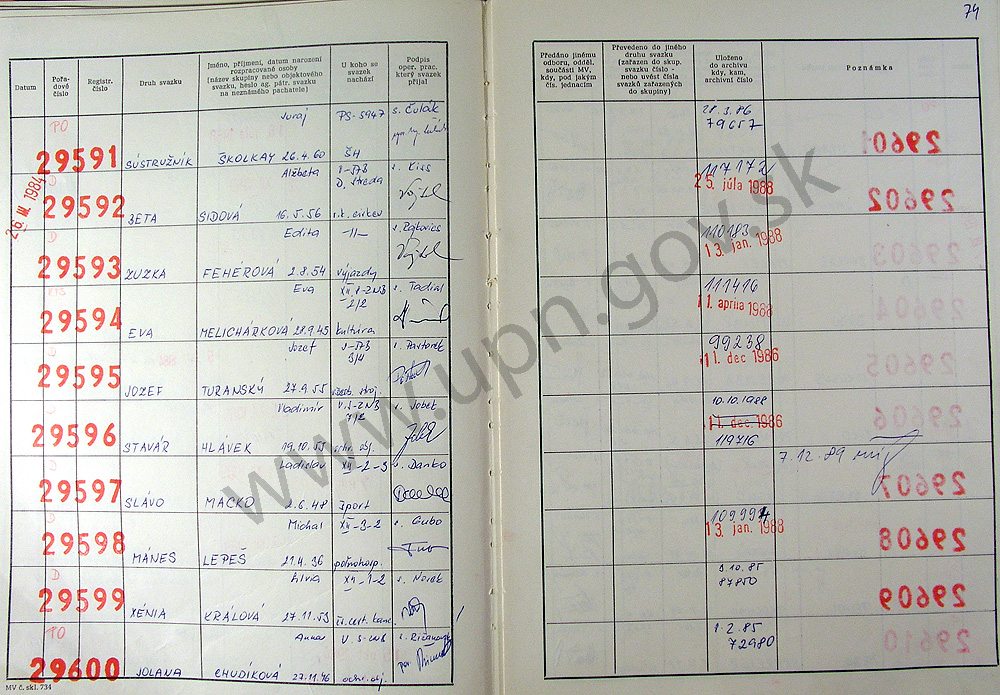 74
Datum
Pořadové číslo
Registr. číslo
Druh svazku
Jméno, příjmení, datum narození rozpracované osoby
(název skupiny nebo objektového svazku, heslo ag. pátr. svazku na neznámého pachatele)
U koho se svazek nachází
Podpis oper. prac. který svazek přijal
Předáno jinému odboru, odděl. součásti MV, kdy, pod jakým čís. jednacím
Převedeno do jiného druhu svazku (zařazen do skup. svazku číslo - nebo uvést čísla svazků zařazených do skupiny)
Uloženo do archivu kdy, kam, archivní číslo
Poznámka
26. III. 1984
PO
Juraj PS-5947 s. Čulák
29591 SÚSTRUŽNÍK ŠKOLKAY 26.4.60 ŠH
28.3.86
79657
Alžbeta D. Streda s. Kiss
29592 BETA SIDOVÁ 16.5.56 r.k. cirkev
117172
25. júla 1988
D
Edita -11-
29593 ZUZKA FEHÉROVÁ 2.8.54 výjazdy
110183
13. jan. 1988
Eva XII. s.
29594 EVA MELICHÁRKOVÁ 28.9.45 kultúra
111416
11. apríla 1988
Jozef 3/4 s. Pastorek
29595 JOZEF TURANSKÝ 27.9.55 stroj.
99238
11. dec 1986
Vladimír s.
29596 STAVÁR HLÁVEK 19.10.55 obj.
10.10.1988
11. dec. 1986
119716
D
Ladislav XII-2-3 s. Danko
29597 SLÁVO MACKO 2.6.48 šport
7.12.89
D
Michal XII-3-2 s. Gubo
29598 MÁNES LEPEŠ 21.4.36 poľnohosp.
109991
13. jan. 1988
D
Lívia XII-1-2 s.
29599 XÉNIA KRÁLOVÁ 27.11.53
9.10.85
87850
PO
Anna s.
29600 JOLANA CHUDÍKOVÁ 27.11.46 ochr. obj.
1.2.85
72980
29601
29602
29603
29604
29605
29606
29607
29608
29609
29610
MV č. skl. 734
www.upn.gov.sk